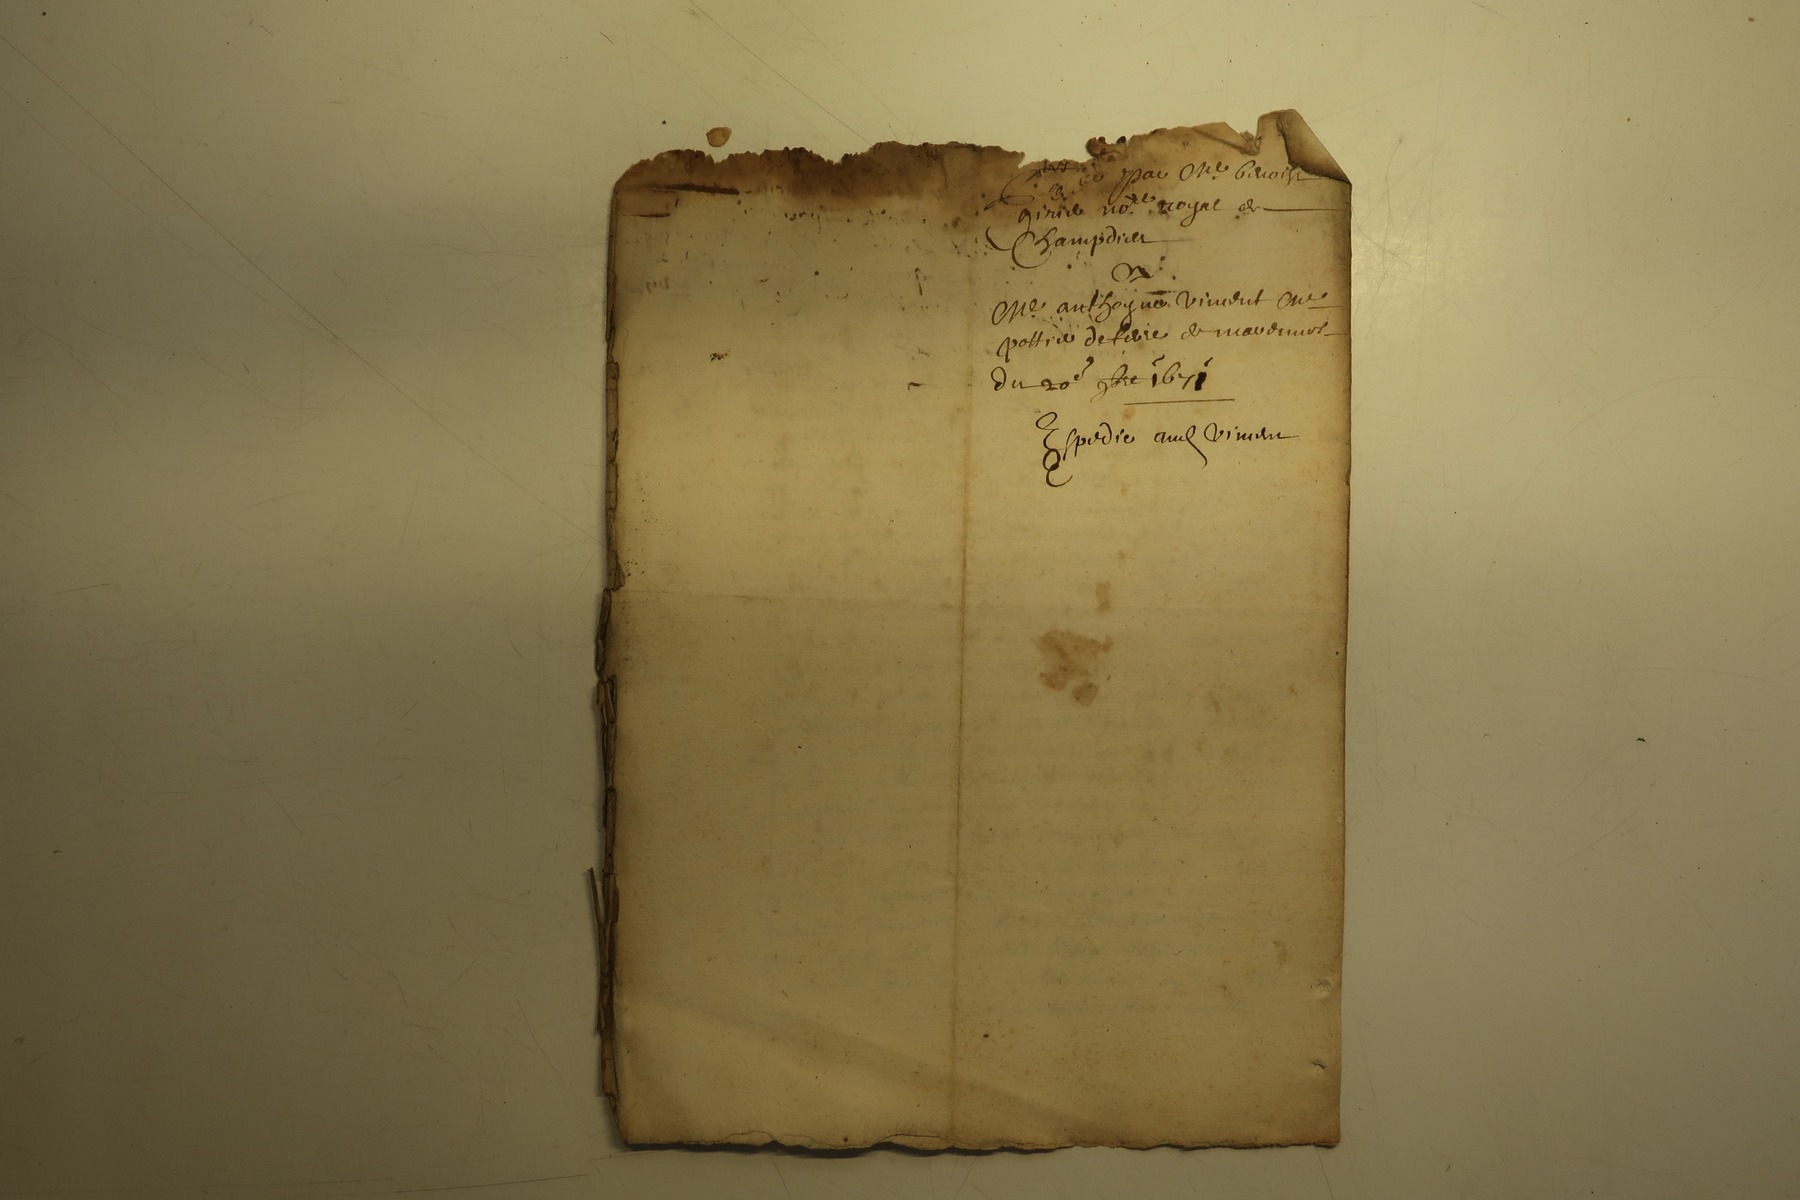 par Me benoist
girie nore royal de
Champdieu
A
Me anthoyne Viment Me
pottier de terre de
du 20e 9bre 1671
Espedie aud Viment